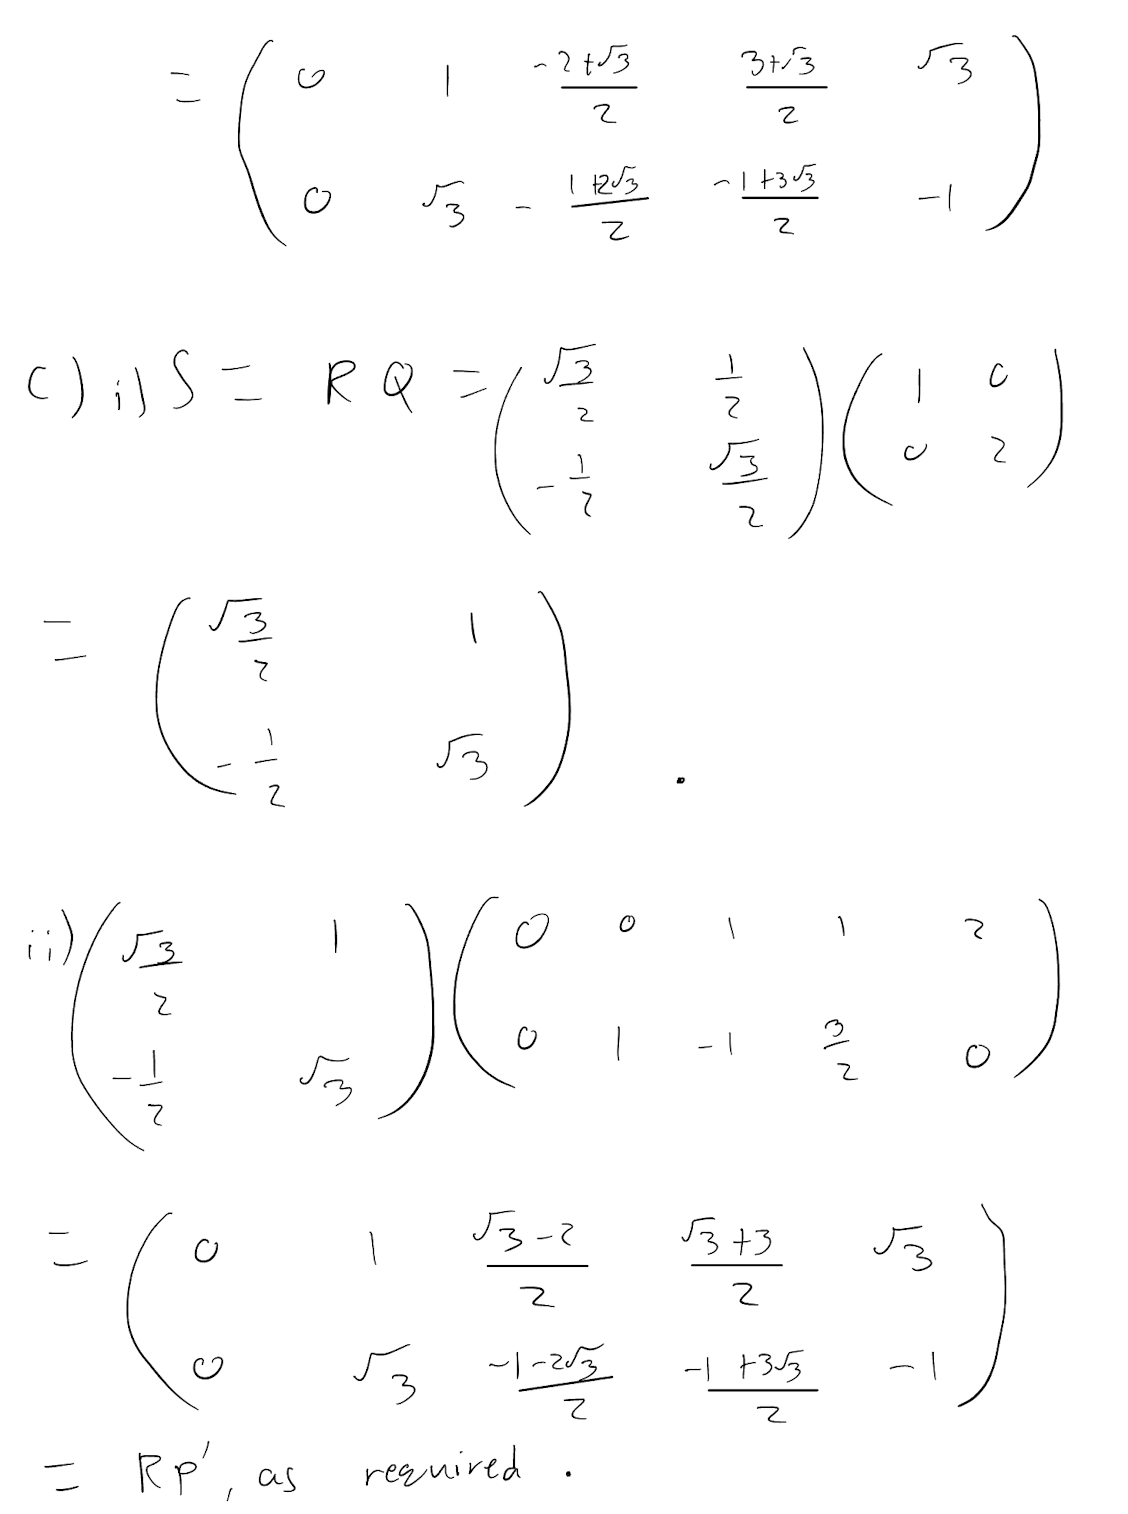 = ( 0 1 (-2+√3)/2 (3+√3)/2 √3 )
( 0 √3 -(1+2√3)/2 (-1+3√3)/2 -1 )
c) i) S = RQ = ( √3/2 1/2 ) ( 1 0 )
( -1/2 √3/2 ) ( 0 2 )
= ( √3/2 1 )
( -1/2 √3 ) .
ii) ( √3/2 1 ) ( 0 0 1 1 2 )
( -1/2 √3 ) ( 0 1 -1 3/2 0 )
= ( 0 1 (√3-2)/2 (√3+3)/2 √3 )
( 0 √3 (-1-2√3)/2 (-1+3√3)/2 -1 )
= RP', as required.